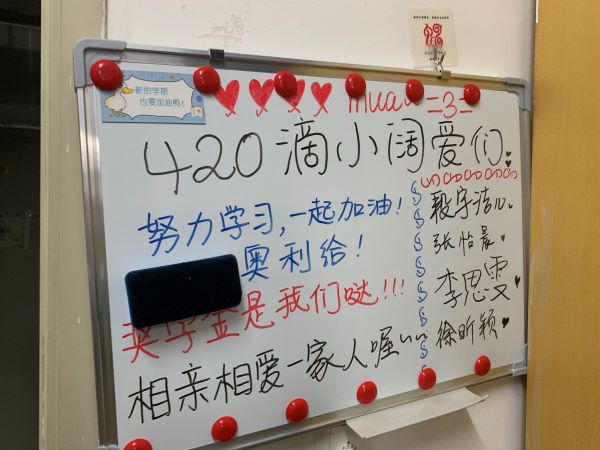 新的学期
也要加油鸭！
mua~ =3=
420滴小阔爱们.
努力学习,一起加油!
奥利给!
奖学金是我们哒!!!
相亲相爱一家人喔~~
段宇洁心.
张怡晨.
李思雯
徐昕颖